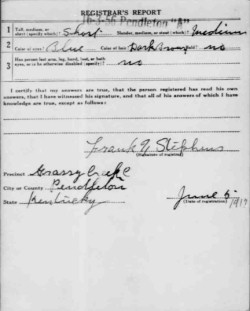 REGISTRAR'S REPORT
16-3-56 Pendleton "A"
1 Tall, medium, or short (specify which)? Short Slender, medium, or stout (which)? Medium
2 Color of eyes? Blue Color of hair? Dark brown no
3 Has person lost arm, leg, hand, foot, or both eyes, or is he otherwise disabled (specify)? no
I certify that my answers are true, that the person registered has read his own
answers, that I have witnessed his signature, and that all of his answers of which I have
knowledge are true, except as follows:
Frank Stephens
(Signature of registrar)
Precinct Grassy Creek
City or County Pendleton
State Kentucky
June 5 1917
(Date of registration)